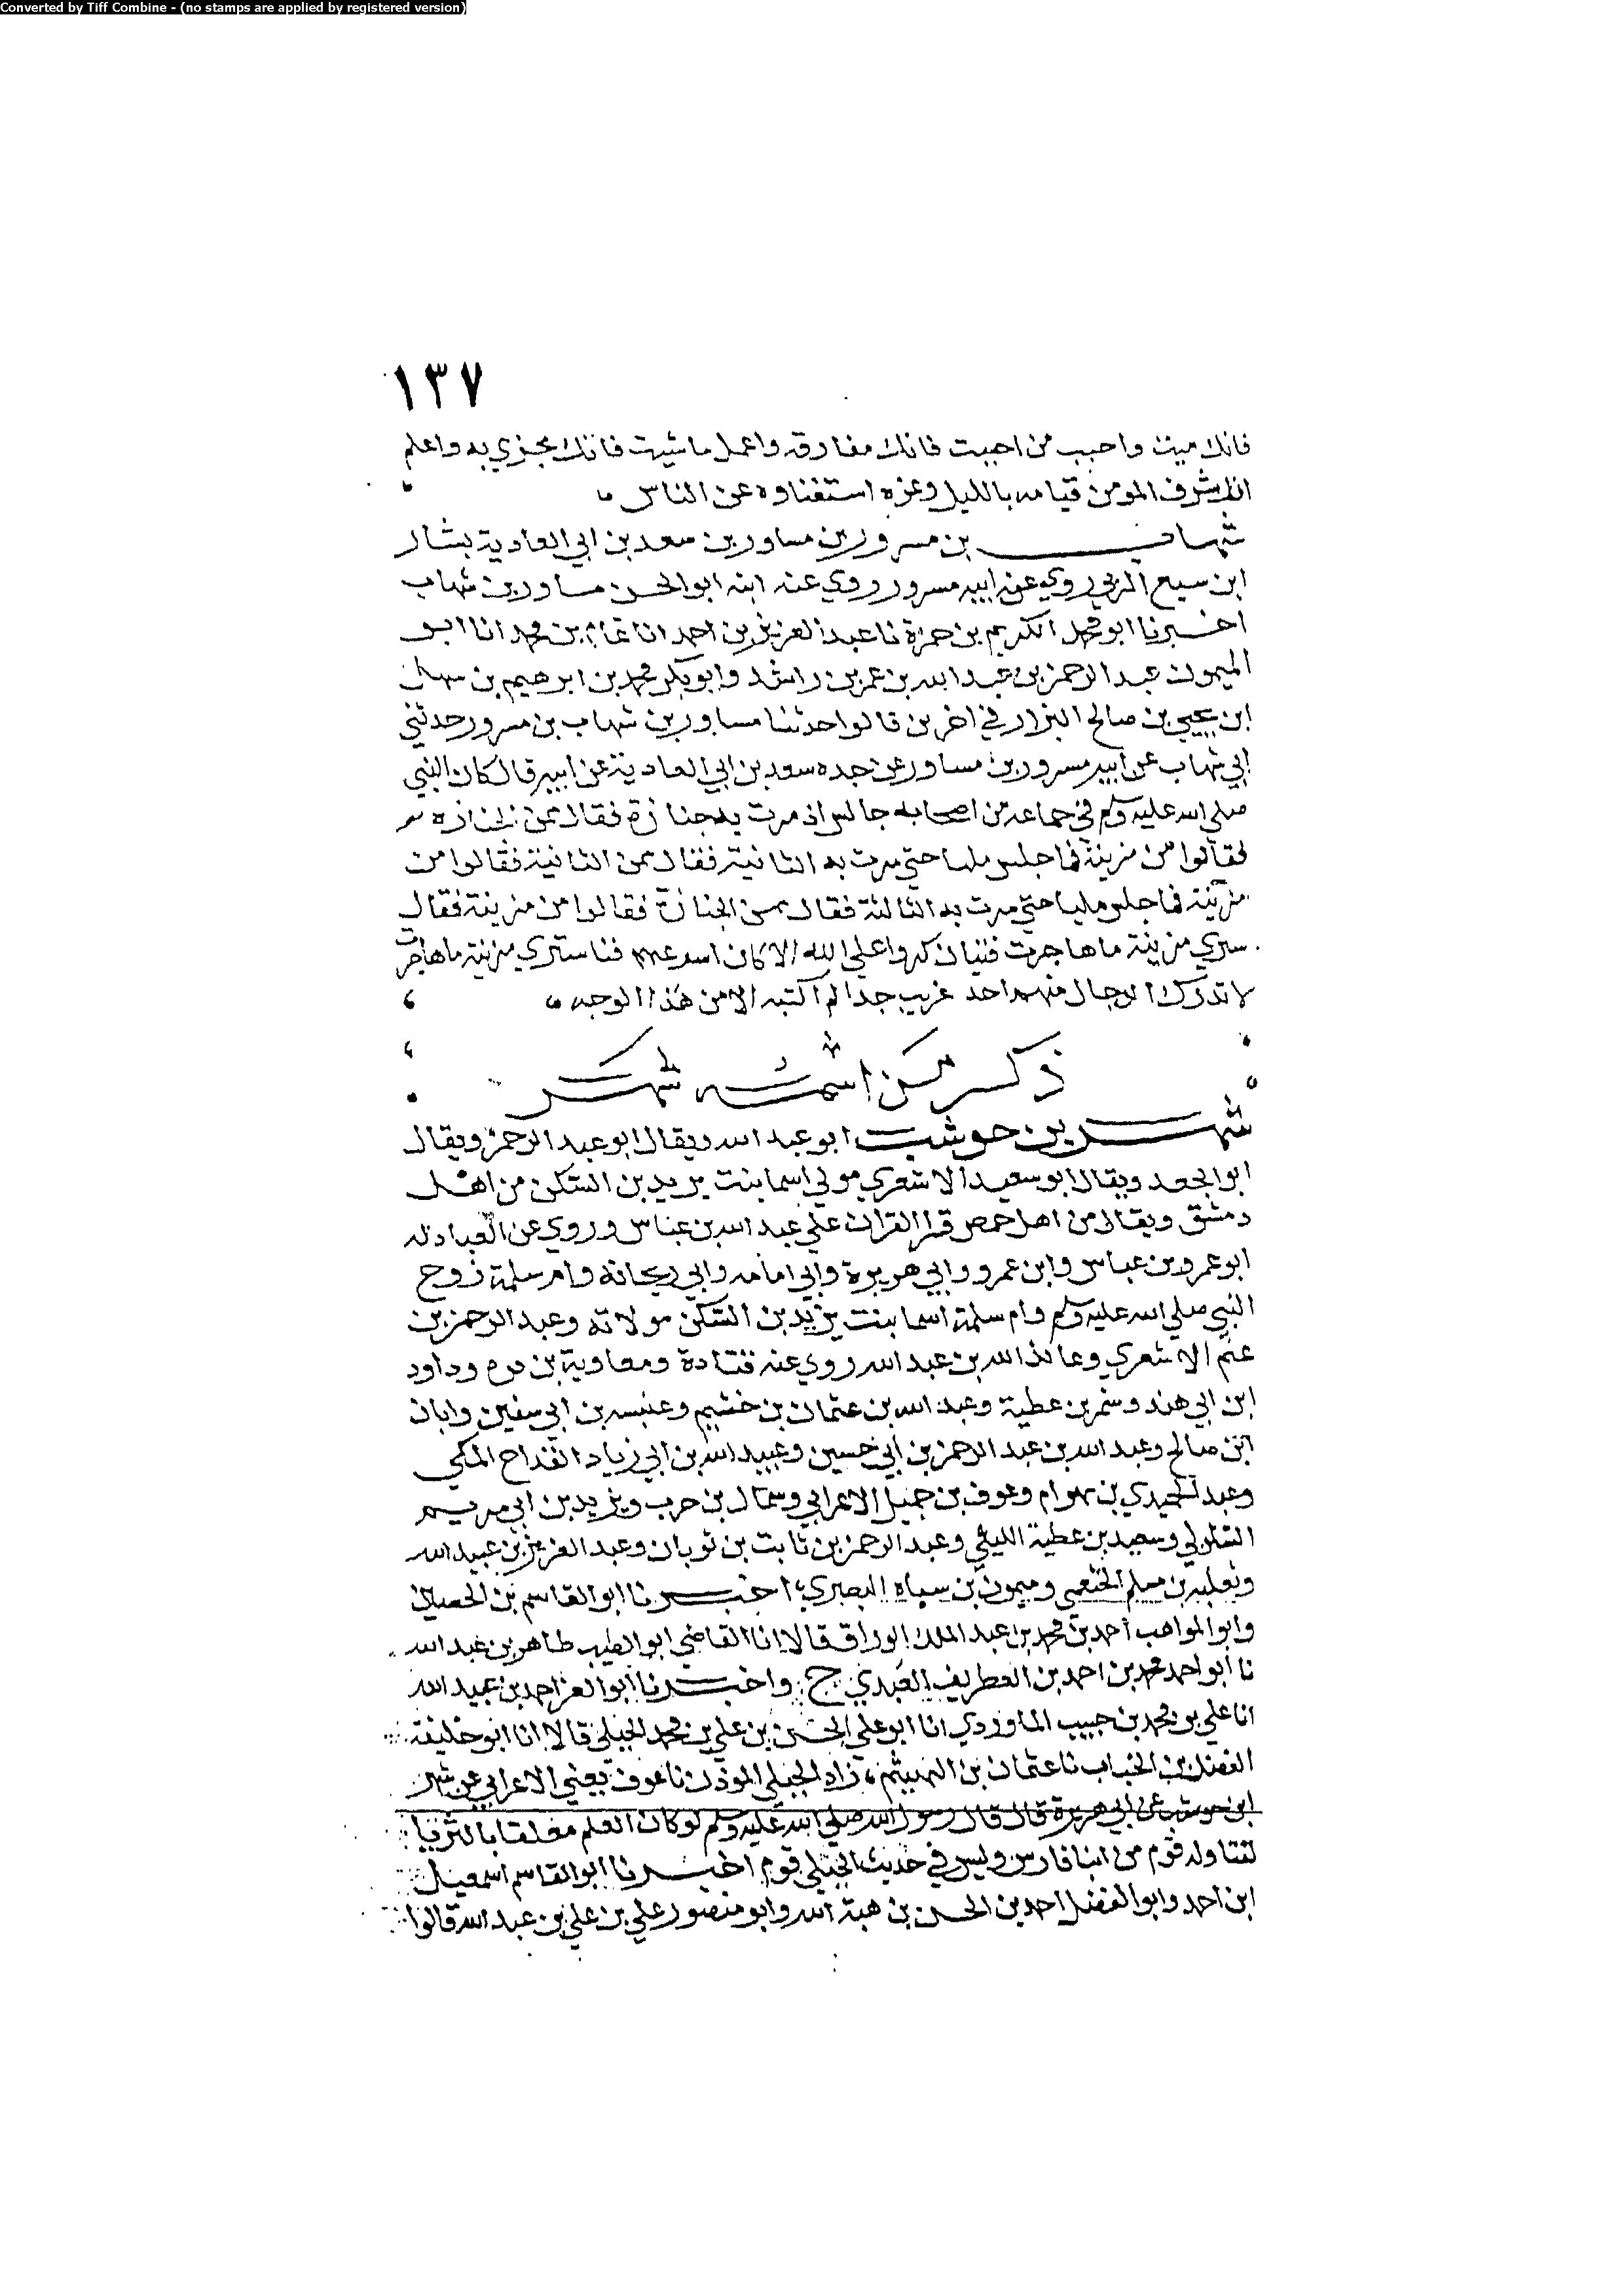 Converted by Tiff Combine - (no stamps are applied by registered version)
١٣٧
فانك ميت واحبب من احببت فانك مفارقه واعمل ما شيت فانك مجزي به واعلم
ان شرف المومن قيامه بالليل وعزه استغناوه عن الناس
شهاب بن مسرور بن مساور بن سعد بن ابي العادية بشار
ابن سبع المزني روي عن ابيه مسرور روي عنه ابنه ابو الحسن مساور بن شهاب
اخبرنا ابو محمد الكريم بن حمزة نا عبد العزيز بن احمد انا تمام بن محمد انا ابو
الميمون عبد الرحمن بن عبد الله بن عمر بن راشد وابو بكر محمد بن ابرهيم بن سهل
ابن يحيي بن صالح البزار في اخرين قالوا حدثنا مساور بن شهاب بن مسرور حدثني
ابي شهاب عن ابيه مسرور بن مساور عن جده سعد بن ابي العادية عن ابيه قال كان النبي
صلي الله عليه وسلم في جماعه من اصحابه جالس اذ مرت به جنازة فقال ممن الجنازه
فقالوا من مزينة فما جلس مليا حتي مرت به الثانية فقال ممن الثانية فقالوا من
مزينة فما جلس مليا حتي مرت به الثالثة فقال ممن الجنازة فقالوا من مزينة فقال
سيري مزينة ما هاجرت فتيان كروا علي الله الا كان اسرعهم فنا ستري مزينة ما هاجرت
لا تدرك الرجال منهم احد غريب جدا لم اكتبه الا من هذا الوجه
ذكر من اسمه شهر
شهر بن حوشب ابو عبد الله ويقال ابو عبد الرحمن ويقال
ابو الجعد ويقال ابو سعيد الاشعري مولي اسما بنت يزيد بن السكن من اهل
دمشق ويقال من اهل حمص قرا القران علي عبد الله بن عباس وروي عن العبادله
ابو عمرو بن عباس وابن عمرو وابي هريرة وابي امامه وابي ريحانه وام سلمة زوج
النبي صلي الله عليه وسلم وام سلمة اسما بنت يزيد بن السكن مولاته وعبد الرحمن بن
غنم الاشعري وعائذ الله بن عبد الله روي عنه قتادة ومعاوية بن قره وداود
ابن ابي هند وشمر بن عطية وعبد الله بن عثمان بن خثيم وعنبسه بن ابي سفين وابان
ابن صالح وعبد الله بن عبد الرحمن بن ابي حسين وعبيد الله بن ابي زياد القداح المكي
وعبد الحميدي بن بهرام وعوف بن جميل الاعرابي وسماك بن حرب ويزيد بن ابي مريم
السلولي وسعيد بن عطية الليثي وعبد الرحمن بن ثابت بن ثوبان وعبد العزيز بن عبيد الله
وثعلبه بن مسلم الخثعمي وميمون بن سياه البصري اخبرنا ابو القاسم بن الحصين
وابو المواهب احمد بن محمد بن عبد الملك الوراق قالا انا القاضي ابو الطيب طاهر بن عبد الله
نا ابو احمد محمد بن احمد بن الغطريف العبدي ح واخبرنا ابو العز احمد بن عبيد الله
انا علي بن محمد بن حبيب الماوردي انا ابو علي الحسن بن علي بن محمد الجبلي قالا انا ابو خليفة
الفضل بن الحباب نا عثمان بن الهيثم زاد الجبلي الموذن نا عوف يعني الاعرابي عن شهر
ابن حوشب عن ابي هريرة قال قال رسول الله صلي الله عليه وسلم لو كان العلم معلقا بالثريا
لتناوله قوم من ابنا فارس وليس في حديث الجبلي قوم اخبرنا ابو القاسم اسمعيل
ابن احمد وابو الفضل احمد بن الحسن بن هبة الله وابو منصور علي بن علي بن عبد الله قالوا